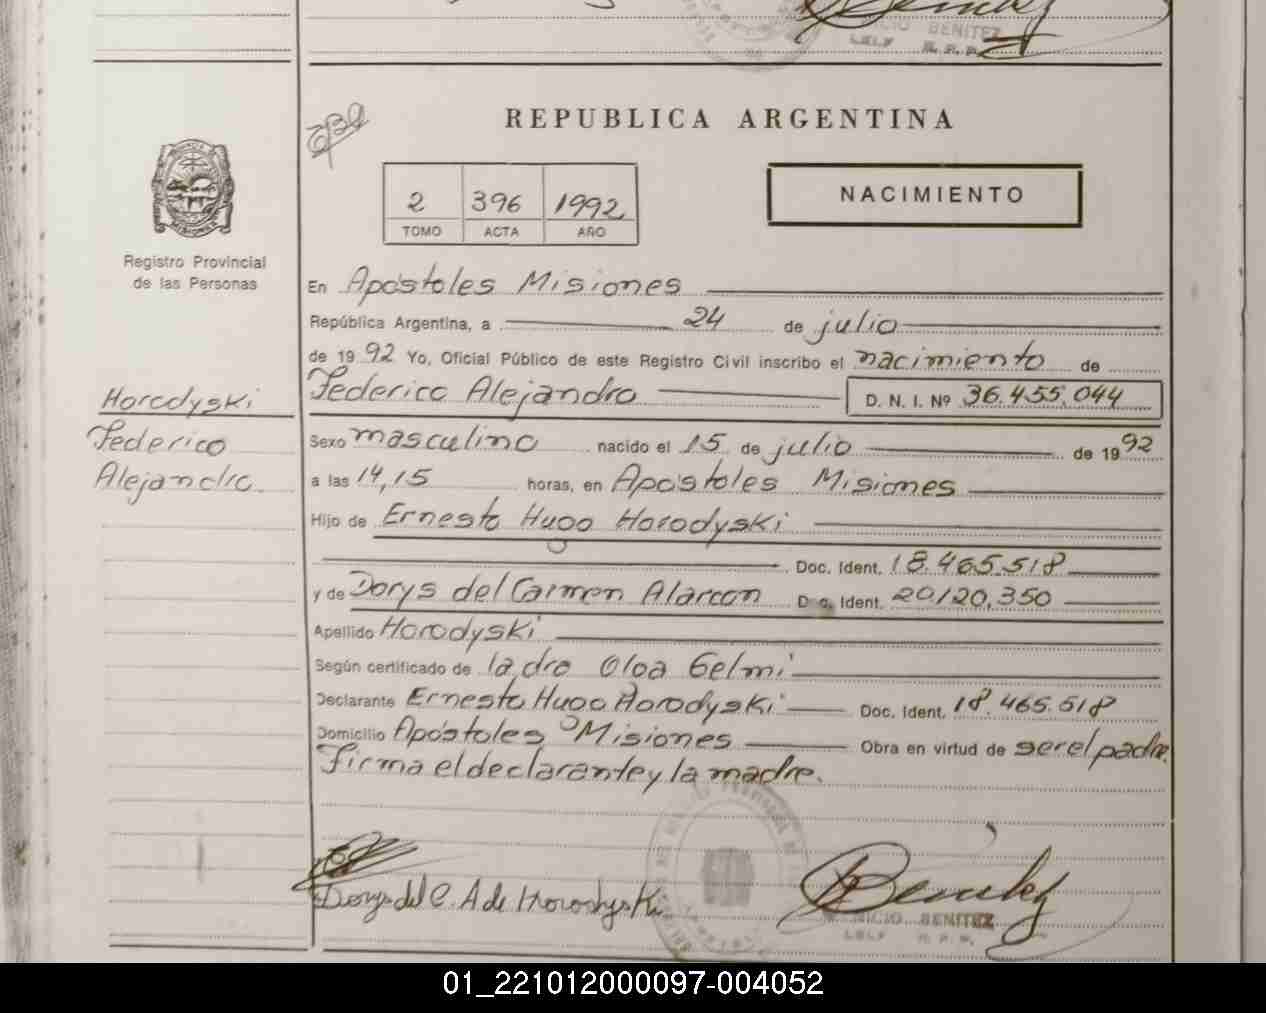 BENITEZ
REPUBLICA ARGENTINA
2 396 1992
TOMO ACTA AÑO
NACIMIENTO
Registro Provincial
de las Personas
En Apóstoles Misiones
República Argentina, a 24 de julio
de 1992 Yo, Oficial Público de este Registro Civil inscribo el nacimiento de
Federico Alejandro D. N. I. Nº 36.455.044
Horodyski
Federico
Alejandro
Sexo masculino nacido el 15 de julio de 1992
a las 14,15 horas, en Apóstoles Misiones
Hijo de Ernesto Hugo Horodyski
Doc. Ident. 18.465.518
y de Dorys del Carmen Alarcon Doc. Ident. 20/20,350
Apellido Horodyski
Según certificado de la dra Olga Gelmi
Declarante Ernesto Hugo Horodyski Doc. Ident. 18.465.518
Domicilio Apóstoles Misiones Obra en virtud de ser el padre.
Firma el declarante y la madre.
Dorys del C. A de Horodyski
BENITEZ
01_221012000097-004052